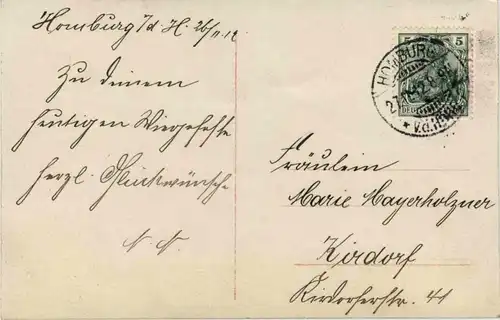 Homburg v/d. H. 26/11.12
Zu deinem
heutigen Wiegefeste
herzl. Glückwünsche
N. N.
5 5
HOMBURG
v.d. Höhe
Fräulein
Marie Mayerholzner
Kirdorf
Kirdorferstr. 41